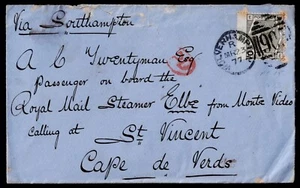 Via Southampton
A C Twentyman Esq
Passenger on board the
Royal Mail Steamer "Elbe" from Monte Video
calling at St Vincent
Cape de Verds
77